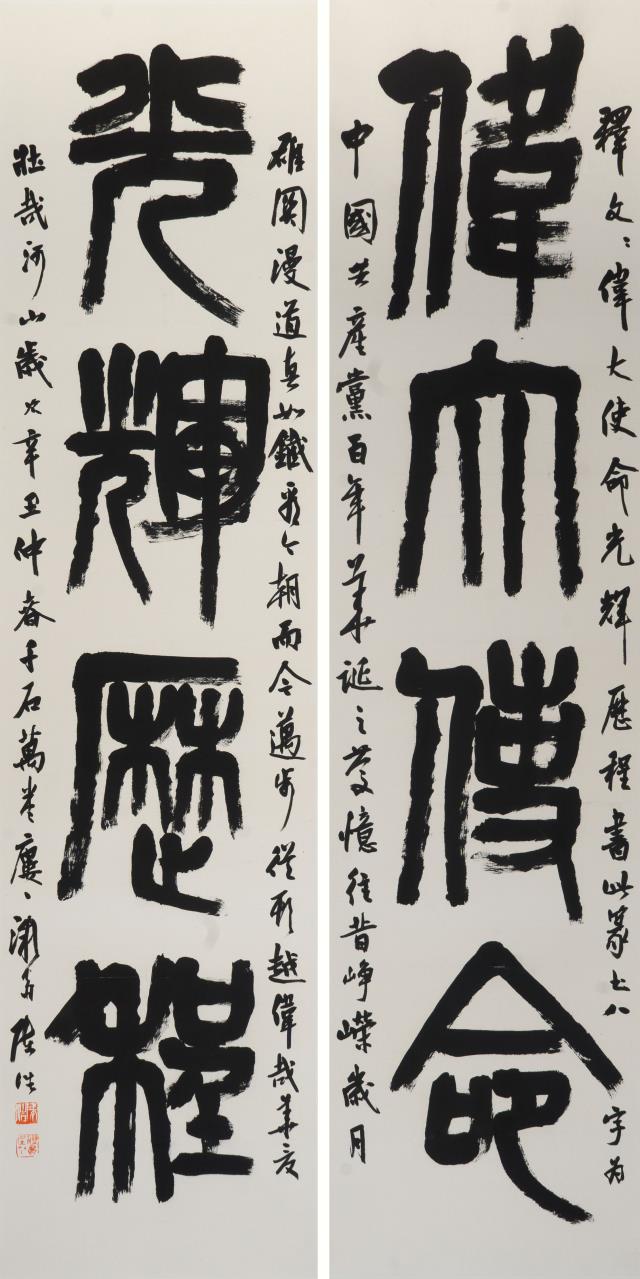 偉大使命
釋文:偉大使命光輝歷程書此篆書八字為
中國共產黨百年華誕之慶憶往昔崢嶸歲月
光輝歷程
雄關漫道真如鐵看今朝而今邁步從頭越偉哉華夏
壯哉河山歲次辛丑仲春于石萬卷廔